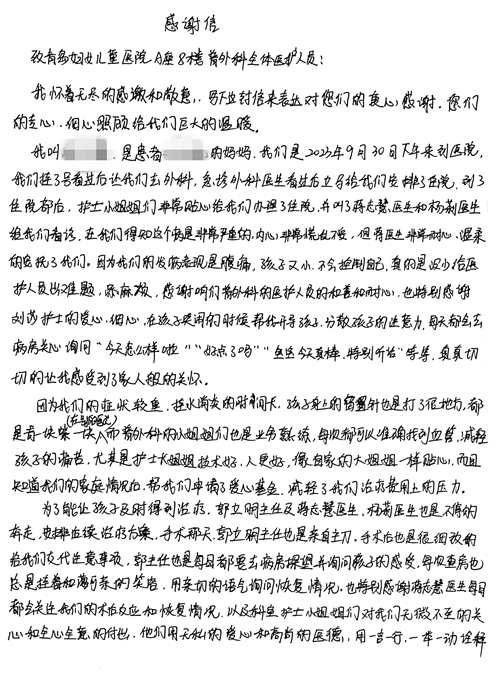 感谢信
致青岛妇女儿童医院A座8楼普外科全体医护人员：
我怀着无尽的感激和敬意，写下这封信来表达对您们的衷心感谢。您们
的关心、细心照顾给我们巨大的温暖。
我叫 是患者 的妈妈，我们是2023年9月30日下午来到医院，
我们挂了号看过后让我们去外科，急诊外科医生看过后立马给我们安排了住院，到了
住院部后，护士小姐姐们非常贴心给我们办理了住院，并叫了蒋志慧医生和杨菊医生
给我们看诊，在我们得知这个病是非常严重的，内心非常慌乱不安，但蒋医生非常耐心、温柔
的安抚了我们。因为我们的发病表现是腹痛，孩子又小，不会控制自己，真的是没少给医
护人员出难题，添麻烦，感谢咱们普外科的医护人员的和善和耐心，也特别感谢
刘莎护士的爱心、细心，在孩子哭闹的时候帮我们哄孩子，分散孩子的注意力，每天都会去
病房关心询问“今天怎么样啦”“好点了吗”“宝宝今天真棒，特别听话”等等，真真切
切的让我感受到了家人般的关怀。
因为我们的症状较重，挂水消炎的时间长，孩子身上的留置针也是打了很多地方，都
是青一块紫一块，而普外科的小姐姐们也是业务熟练，每次都可以准确找到血管，减轻
孩子的痛苦，尤其是护士大姐姐技术好，人更好，像自家的大姐姐一样贴心，而且
知道我们的家庭情况后，帮我们申请了爱心基金，减轻了我们治疗费用上的压力。
为了能让孩子及时得到治疗，郭立明主任及蒋志慧医生、杨菊医生也是不停的
奔走，安排应该治疗方案，手术那天，郭立明主任也是亲自主刀，手术后也是很细致的
给我们交代注意事项，郭主任也是每日都要去病房探望并询问孩子的感受，每次查房也
总是挂着和蔼可亲的笑容，用亲切的语气询问恢复情况，也特别感谢蒋志慧医生每日
都会关注我们的术后反应和恢复情况，以及科室护士小姐姐们对我们无微不至的关
心和全心全意的付出，他们用无私的爱心和高尚的医德，用一言一行、一举一动诠释